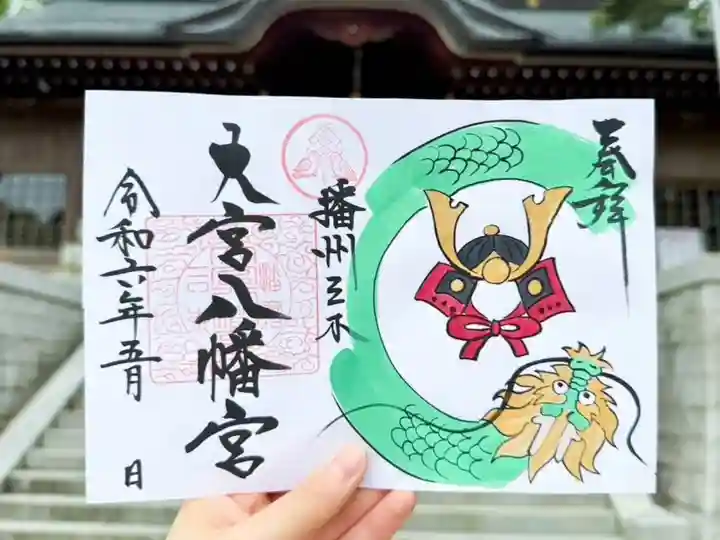 奉拝
播州三木
大宮八幡宮
令和六年五月 日